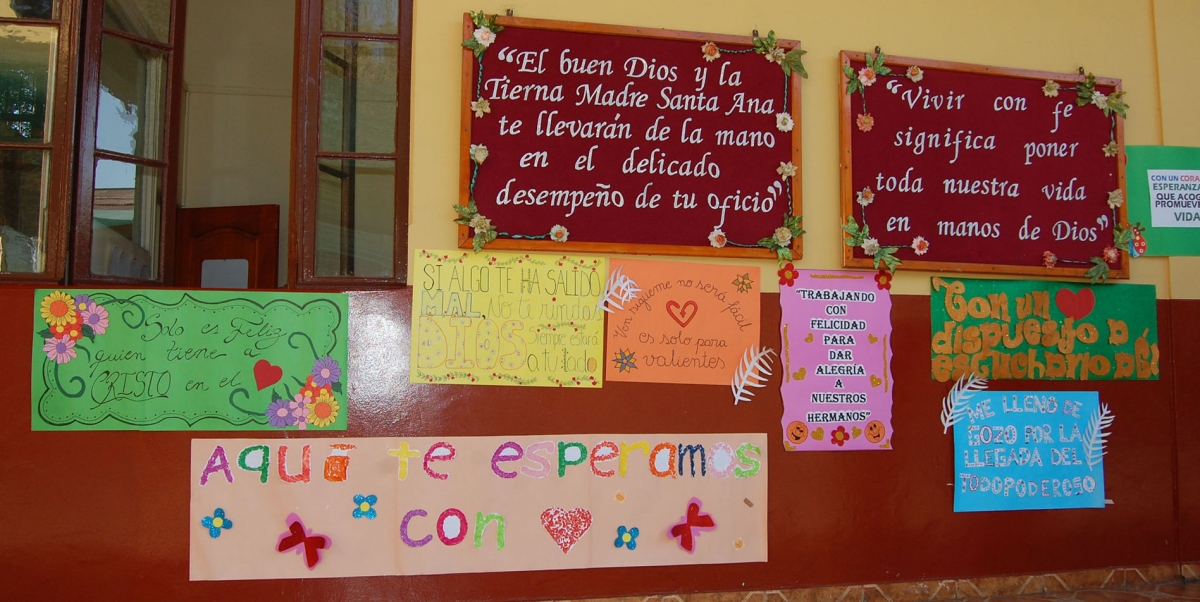 “El buen Dios y la
Tierna Madre Santa Ana
te llevarán de la mano
en el delicado
desempeño de tu oficio”
“Vivir con fe
significa poner
toda nuestra vida
en manos de Dios”
CON UN CORA
ESPERANZA
QUE ACOG
PROMUEVE
VIDA
Solo es Feliz
quien tiene a
CRISTO en el
SI ALGO TE HA SALIDO
MAL, No te rindas
DIOS siempre estará
a tu lado
no será fácil
es solo para
valientes
"TRABAJANDO
CON
FELICIDAD
PARA
DAR
ALEGRÍA
A
NUESTROS
HERMANOS"
Con un
dispuesto a
escucharlo a Él
ME LLENO DE
GOZO POR LA
LLEGADA DEL
TODOPODEROSO
Aquí te esperamos
con